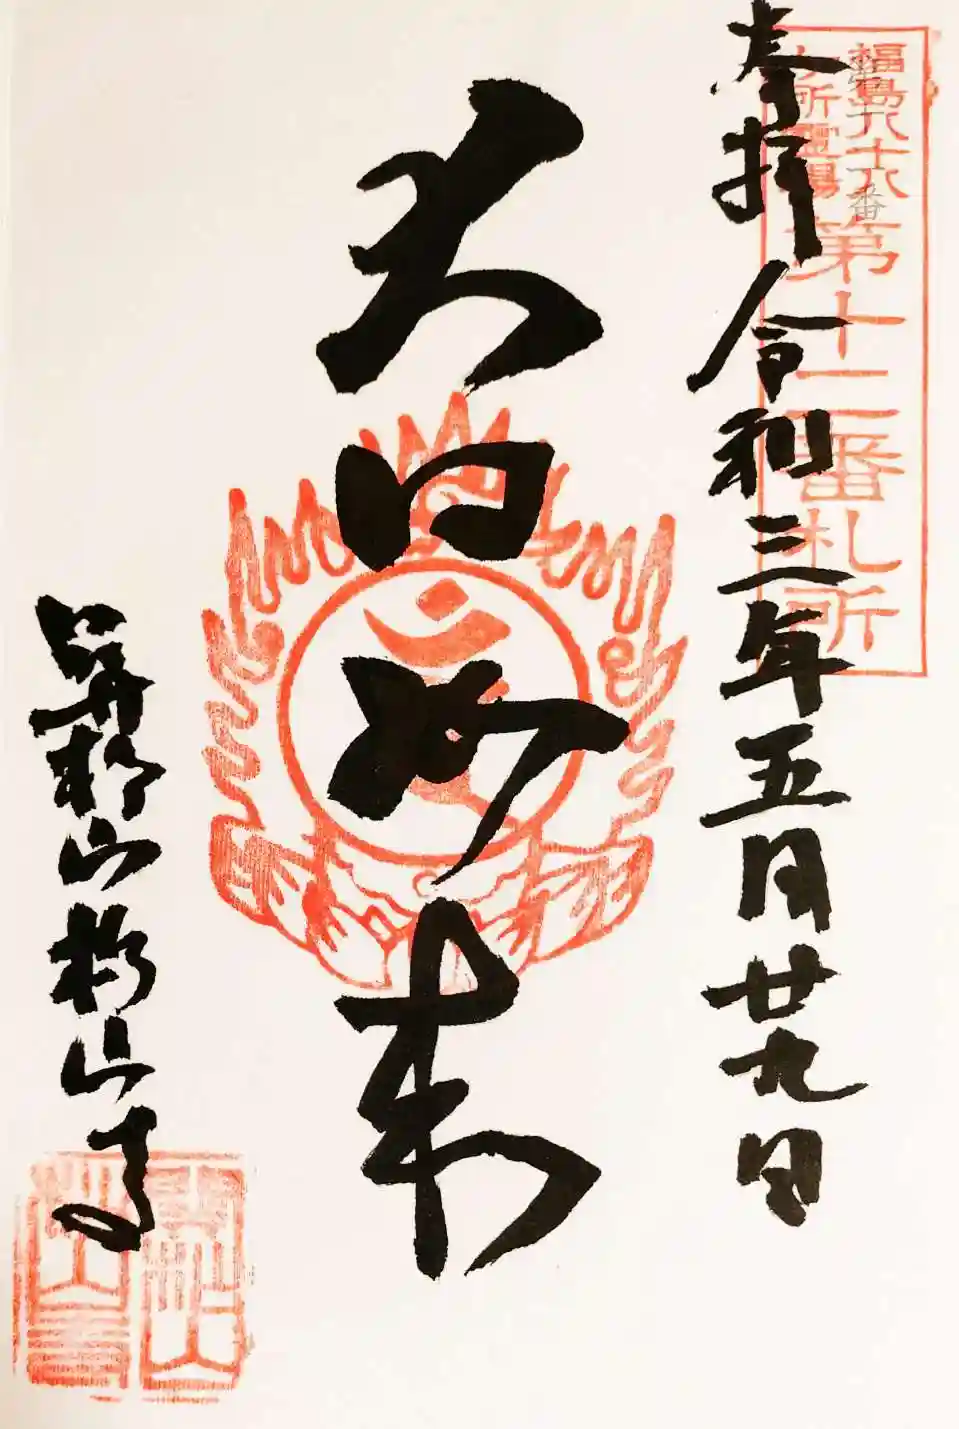 福島八十八
ヶ所霊場
第十二番札所
奉拝 令和三年五月廿九日
大日如来
山 山寺